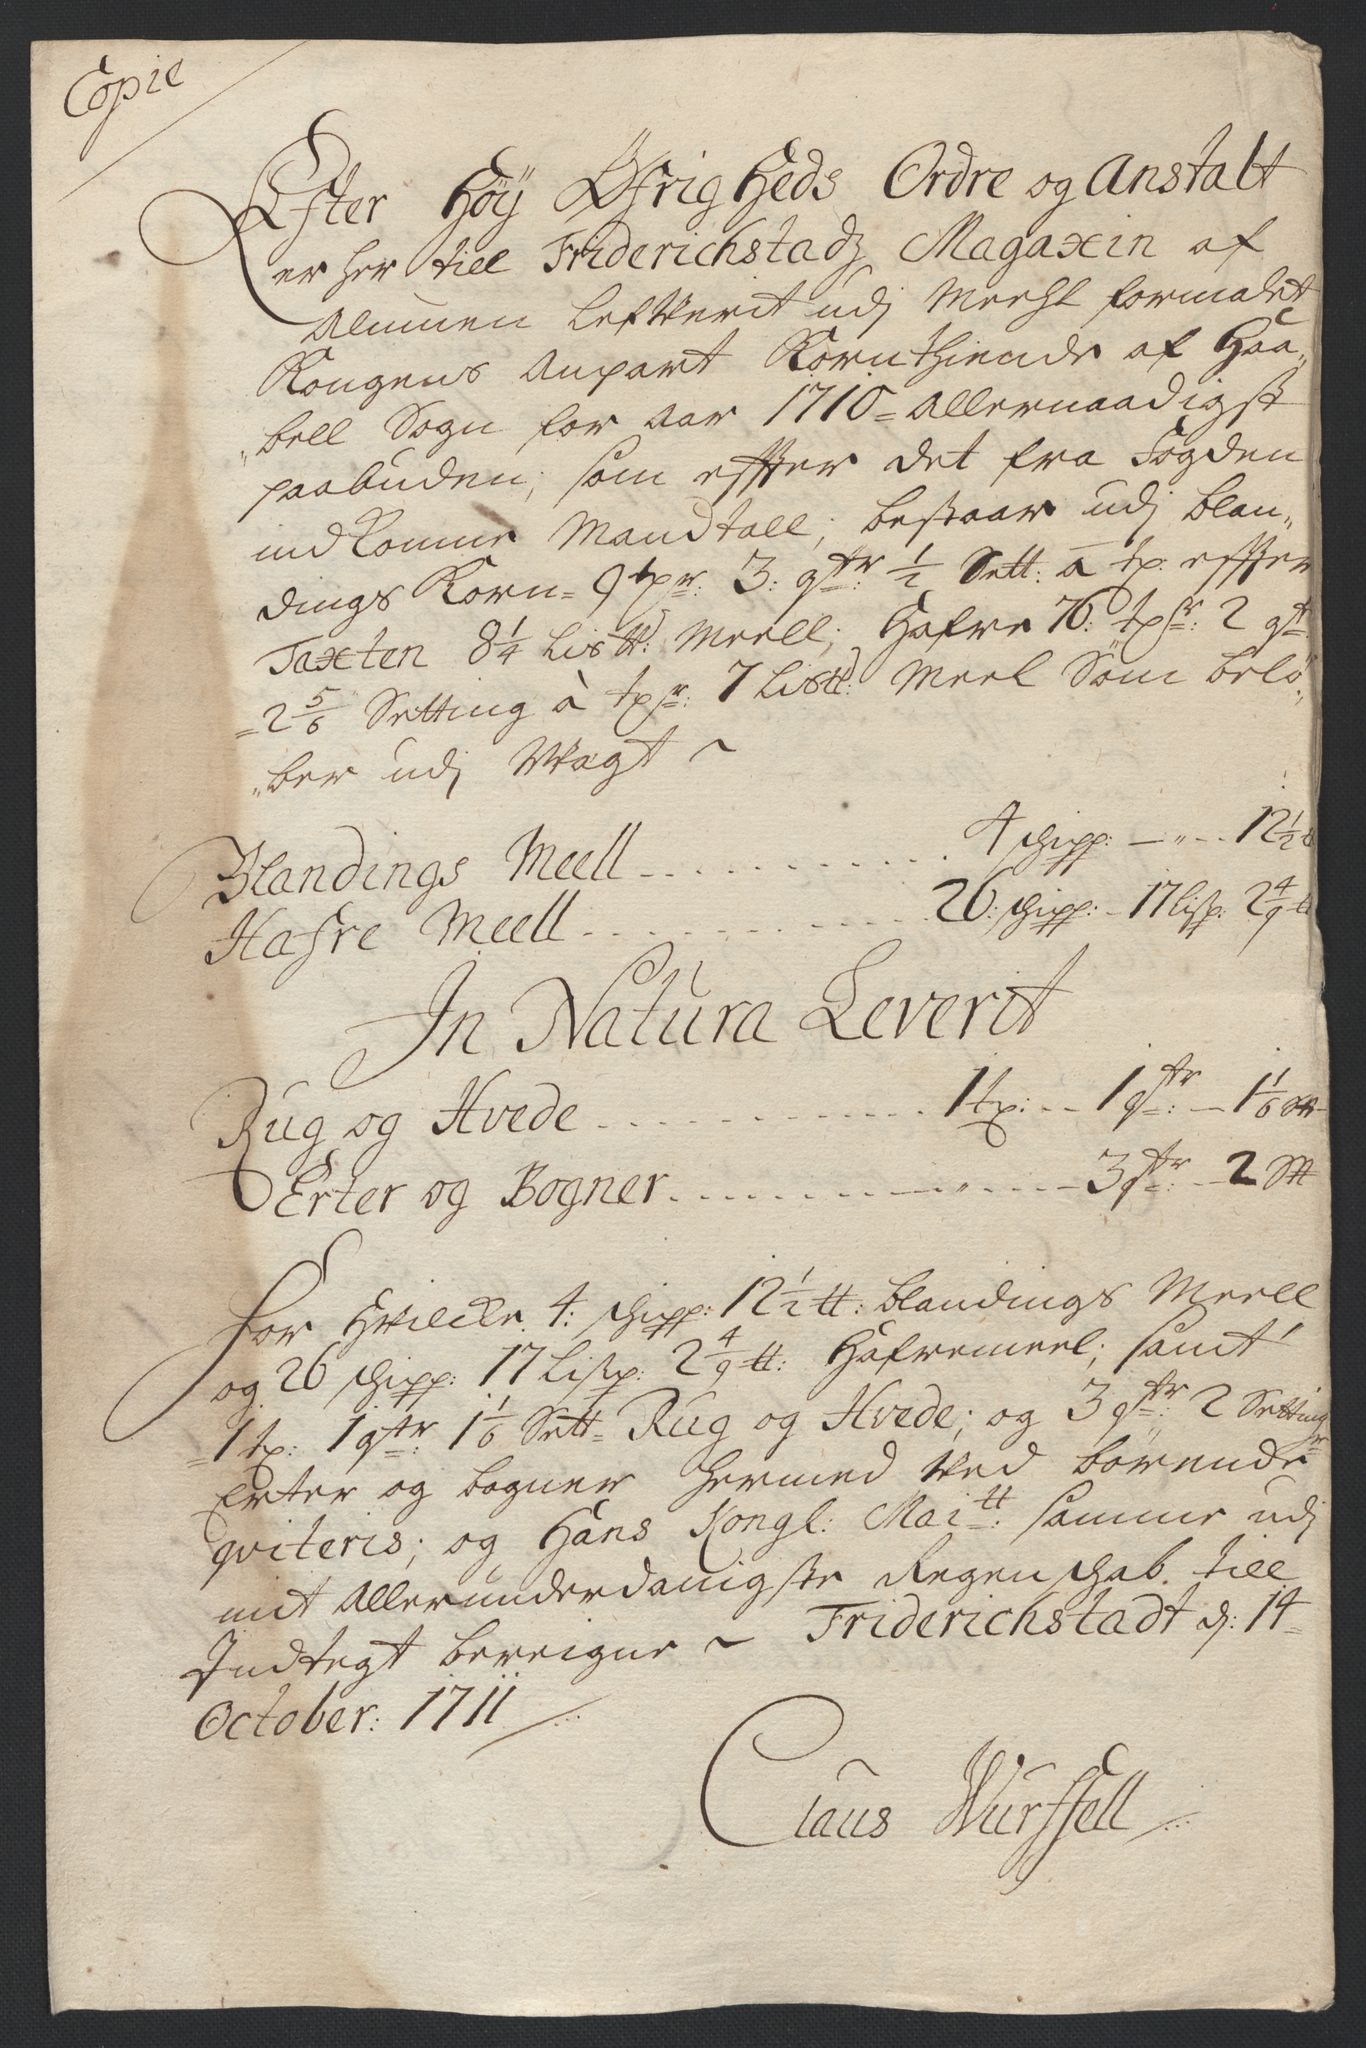 Copie
Efter Höy Øfrigheds Ordre og Anstalt
er her till Friderichstadz Magaxin af
Almuen Lefverit udj Meehl formalet
Kongens Anpart Kornthiende af Haa„
„bell Sogn for Aar 1710 = Allernaadigst
paabuden; som effter det fra Fogden
indkomne Mandtall, bestaar udj blan„
dings Korn = 9 tpr: 3: qtr: ½ Sett: à tp: effter
Taxten 8¼ Lis℔: Meell; Hafre 76: tpr: 2 qtr:
= 2 5/6 Setting à tpr: 7 Lis℔: Meel Som belö„
„ber udj Wegt ~
Blandings Meell . . . . . . . . 4 schipp: — „ — 12½ ℔
Hafre Meell . . . . . . . . 26: schipp: – 17 lisp: 2 4/9 ℔
In Natura Leverit
Rug og Hvede . . . . . . . . 1 tp: — 1 qtr: — 1 1/6 Sett
Erter og Bogner . . . . . . . . — „ — 3 qtr: — 2 Sett
For Hvilcke 4: schipp: 12½ ℔: blandings Meell
og 26 schipp: 17 Lisp: 2 4/9 ℔: Hafremeel; samt
= 1 tp: 1 qtr: 1 1/6 Sett = Rug og Hvede; og 3 qtr: 2 Settinger
Erter og bogner hermed ved börende
qviteris; og Hans Kongl: Maitt: samme udj
mit Allerunderdanigste Regenschab till
Indtegt bereigne ~ Friderichstadt d: 14 =
October: 1711
Claus Wurffell